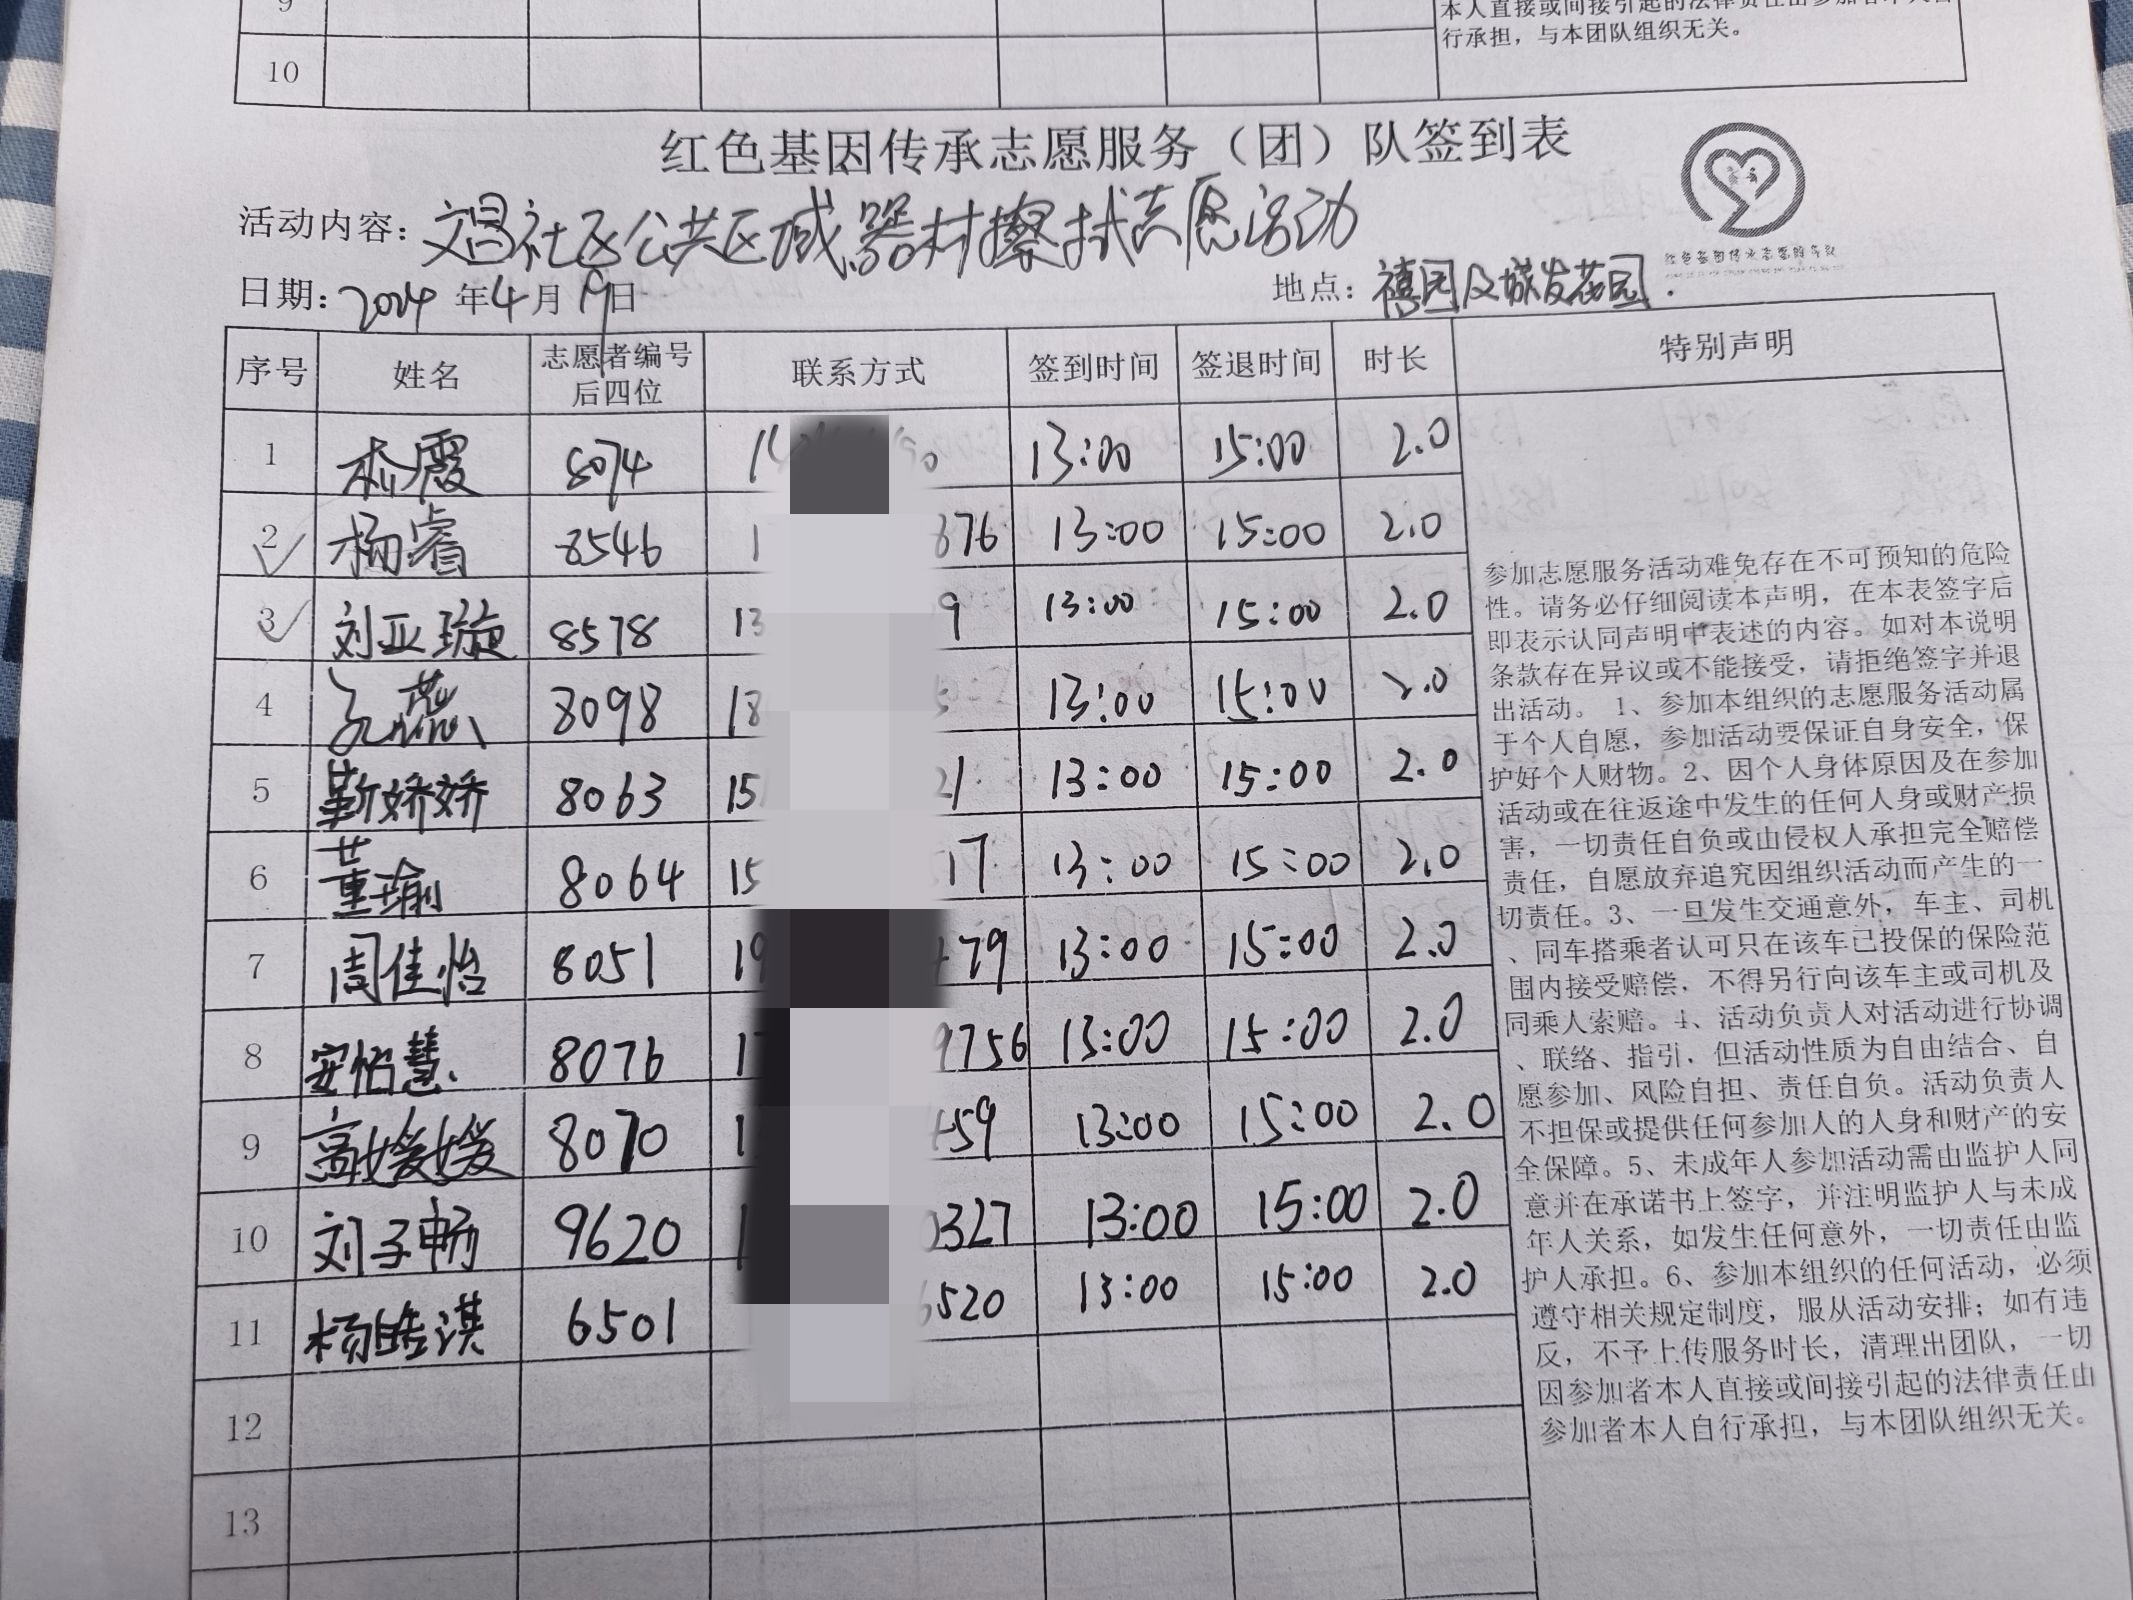 9
本人直接或间接引起的法律责任由参加者本人自
行承担，与本团队组织无关。
10
红色基因传承志愿服务（团）队签到表
活动内容：文昌社区公共区域器材擦拭志愿活动
红色基因传承志愿服务队
日期：2024 年4月19日 地点：禧园及城发花园.
序号 姓名 志愿者编号后四位 联系方式 签到时间 签退时间 时长 特别声明
1 林霞 8074 13:00 15:00 2.0
2 杨睿 8546 1 376 13:00 15:00 2.0
3 刘亚璇 8578 13 9 13:00 15:00 2.0
4 孔燕 8098 18 13:00 15:00 2.0
5 靳娇娇 8063 15 21 13:00 15:00 2.0
6 董瑜 8064 15 17 13:00 15:00 2.0
7 周佳怡 8051 19 79 13:00 15:00 2.0
8 安怡慧 8076 1 9756 13:00 15:00 2.0
9 高媛媛 8070 1 59 13:00 15:00 2.0
10 刘子畅 9620 1 0327 13:00 15:00 2.0
11 杨皓淇 6501 6520 13:00 15:00 2.0
12
13
参加志愿服务活动难免存在不可预知的危险
性。请务必仔细阅读本声明，在本表签字后
即表示认同声明中表述的内容。如对本说明
条款存在异议或不能接受，请拒绝签字并退
出活动。 1、参加本组织的志愿服务活动属
于个人自愿，参加活动要保证自身安全，保
护好个人财物。2、因个人身体原因及在参加
活动或在往返途中发生的任何人身或财产损
害，一切责任自负或由侵权人承担完全赔偿
责任，自愿放弃追究因组织活动而产生的一
切责任。3、一旦发生交通意外，车主、司机
、同车搭乘者认可只在该车已投保的保险范
围内接受赔偿，不得另行向该车主或司机及
同乘人索赔。4、活动负责人对活动进行协调
、联络、指引，但活动性质为自由结合、自
愿参加、风险自担、责任自负。活动负责人
不担保或提供任何参加人的人身和财产的安
全保障。5、未成年人参加活动需由监护人同
意并在承诺书上签字，并注明监护人与未成
年人关系，如发生任何意外，一切责任由监
护人承担。6、参加本组织的任何活动，必须
遵守相关规定制度，服从活动安排；如有违
反，不予上传服务时长，清理出团队，一切
因参加者本人直接或间接引起的法律责任由
参加者本人自行承担，与本团队组织无关。